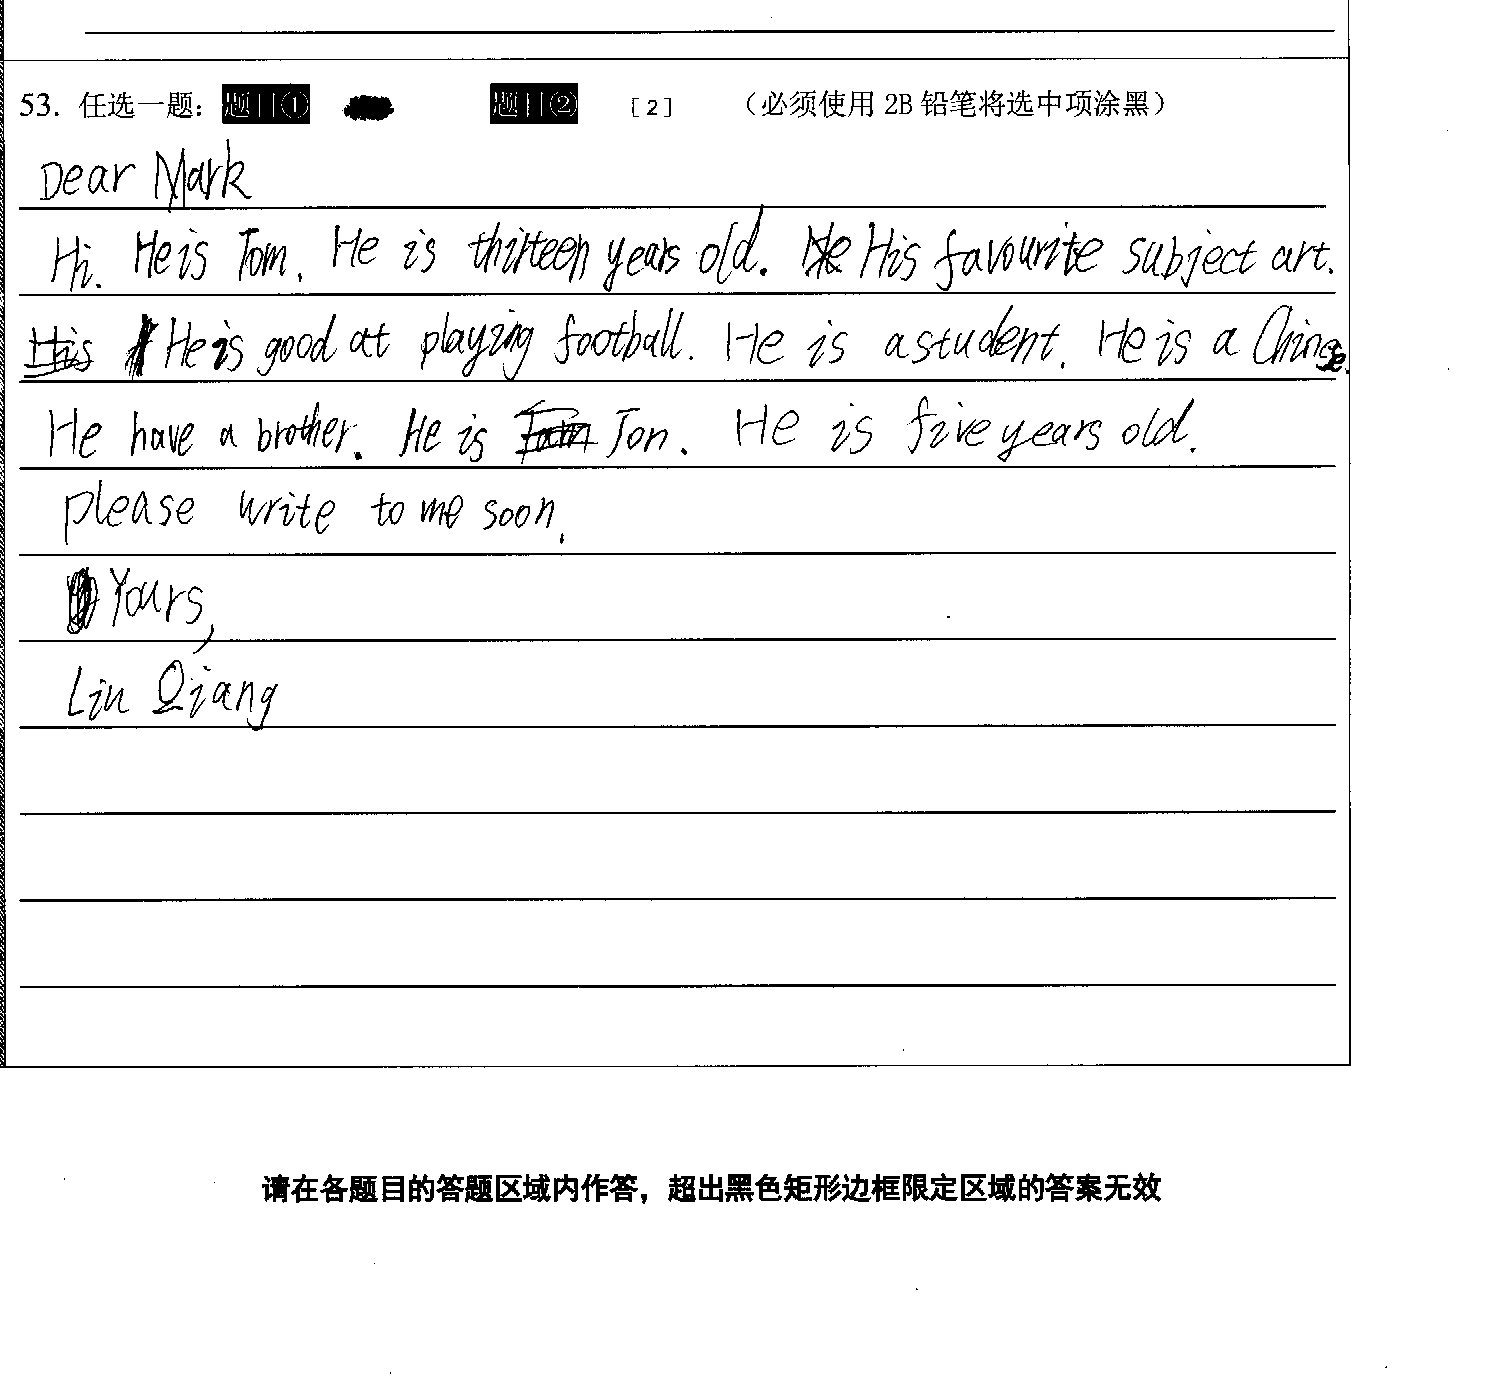 53. 任选一题： 题目① 题目② [2] （必须使用 2B 铅笔将选中项涂黑）
Dear Mark
Hi. He is Tom. He is thirteen years old. He His favourite subject art.
His He is good at playing football. He is a student. He is a Chinese.
He have a brother. He is Jon. He is five years old.
please write to me soon.
Yours,
Lin Qiang
请在各题目的答题区域内作答，超出黑色矩形边框限定区域的答案无效